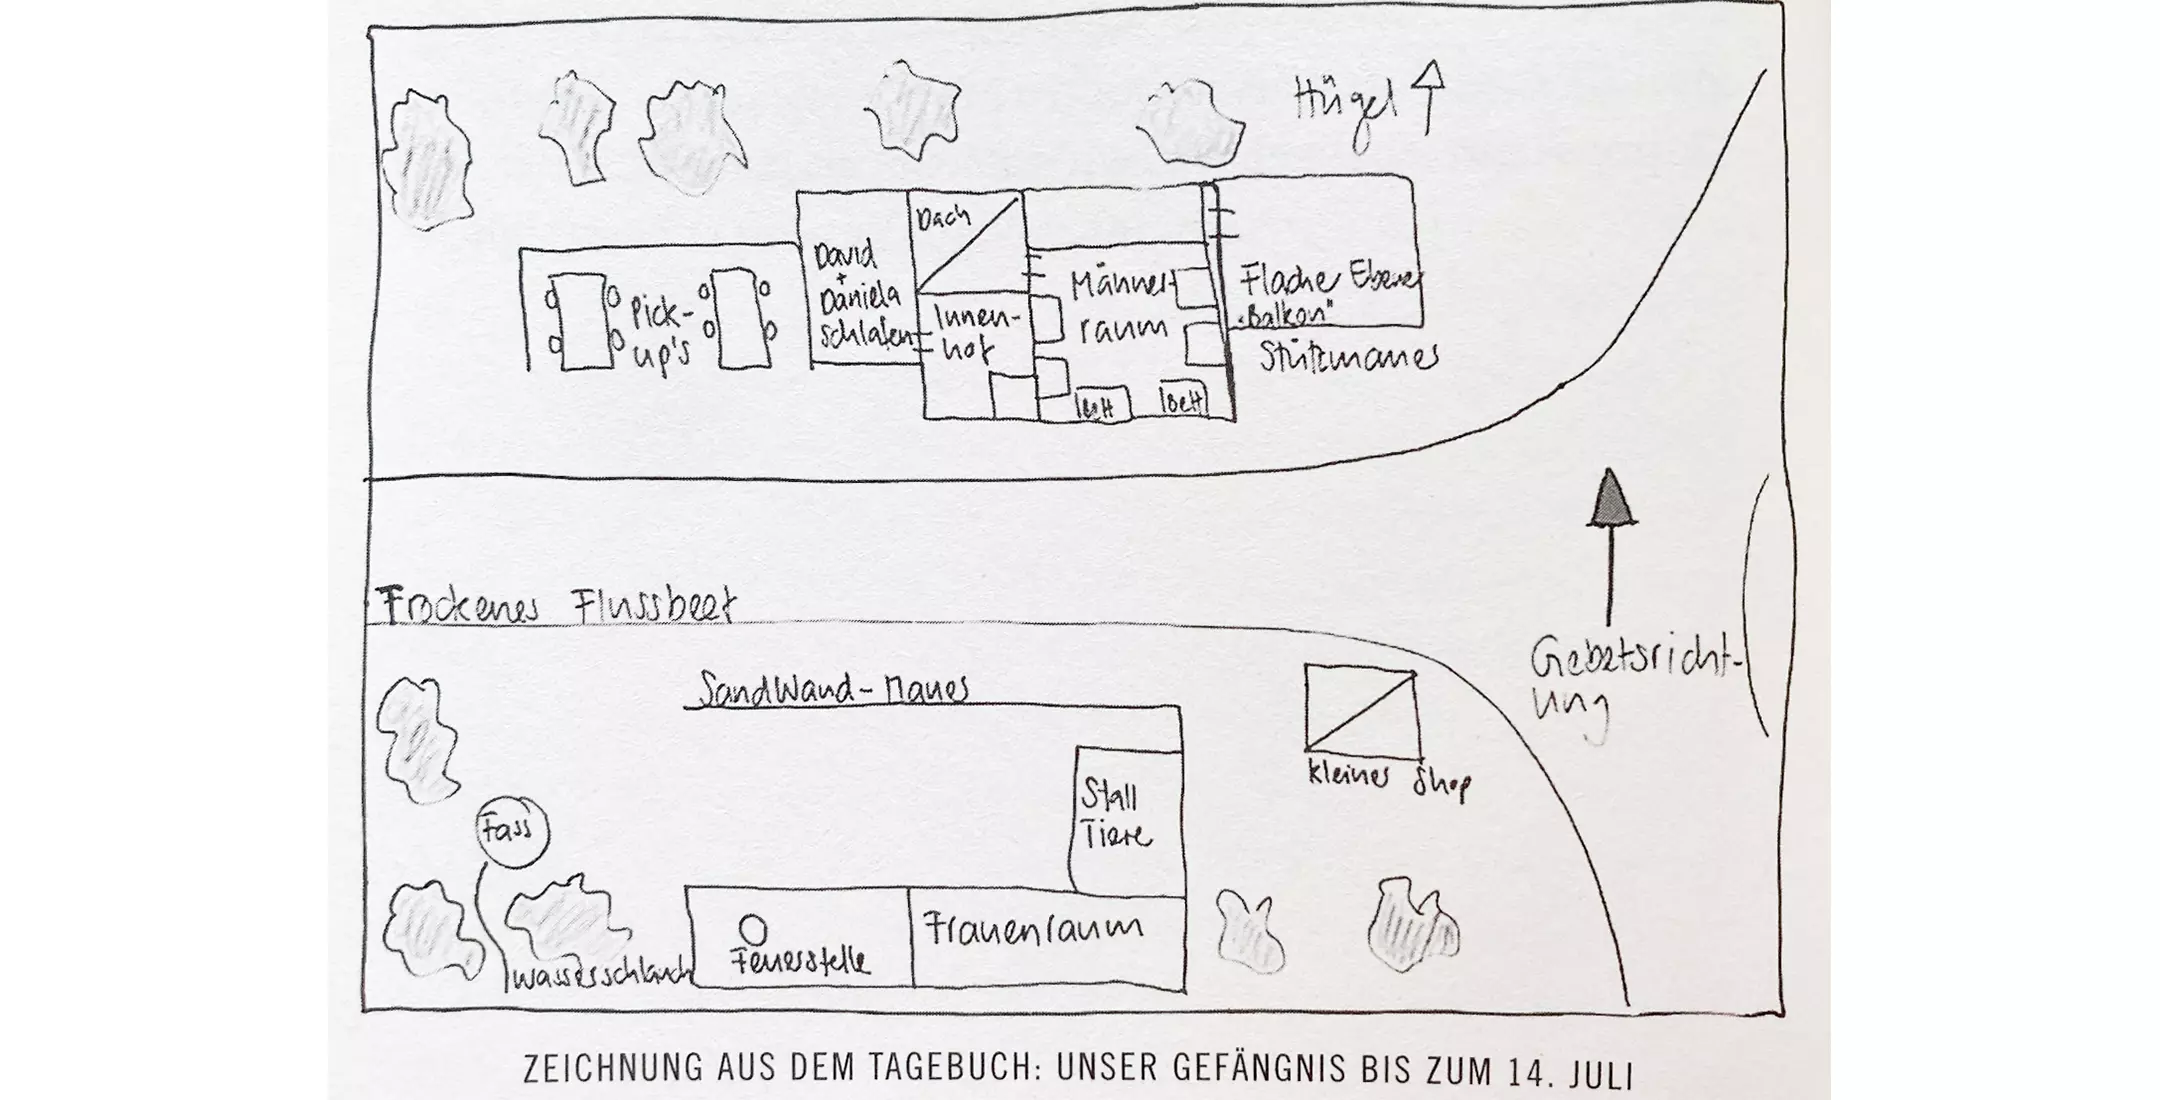 Hügel
Dach
David
+
Daniela
schlafen
Pick-
up's
Innen-
hof
Männer-
raum
Bett
Bett
Flache Ebene
"Balkon"
Stützmauer
Trockenes Flussbeet
Gebetsricht-
ung
Sandwand-Mauer
Stall
Tiere
kleiner Shop
Fass
Wasserschlauch
Feuerstelle
Frauenraum
ZEICHNUNG AUS DEM TAGEBUCH: UNSER GEFÄNGNIS BIS ZUM 14. JULI